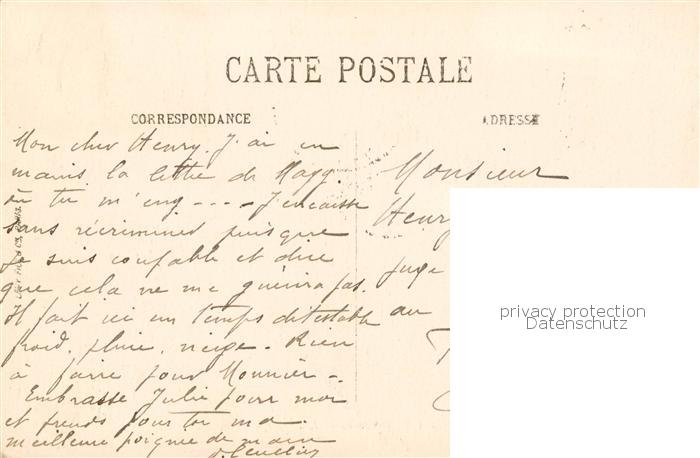 CARTE POSTALE
CORRESPONDANCE
ADRESSE
Mon cher Henry. J'ai en
mains la lettre de Magg.
où tu m'eng - - - - J'encaisse
sans récriminer puisque
je suis coupable et dire
que cela ne me guérira pas.
Il fait ici un temps détestable
froid, pluie, neige. Rien
à faire pour Monnier -
Embrasse Julie pour moi
et prends pour toi ma
meilleure poignée de main
Monsieur
Henry
Juge
au
privacy protection
Datenschutz